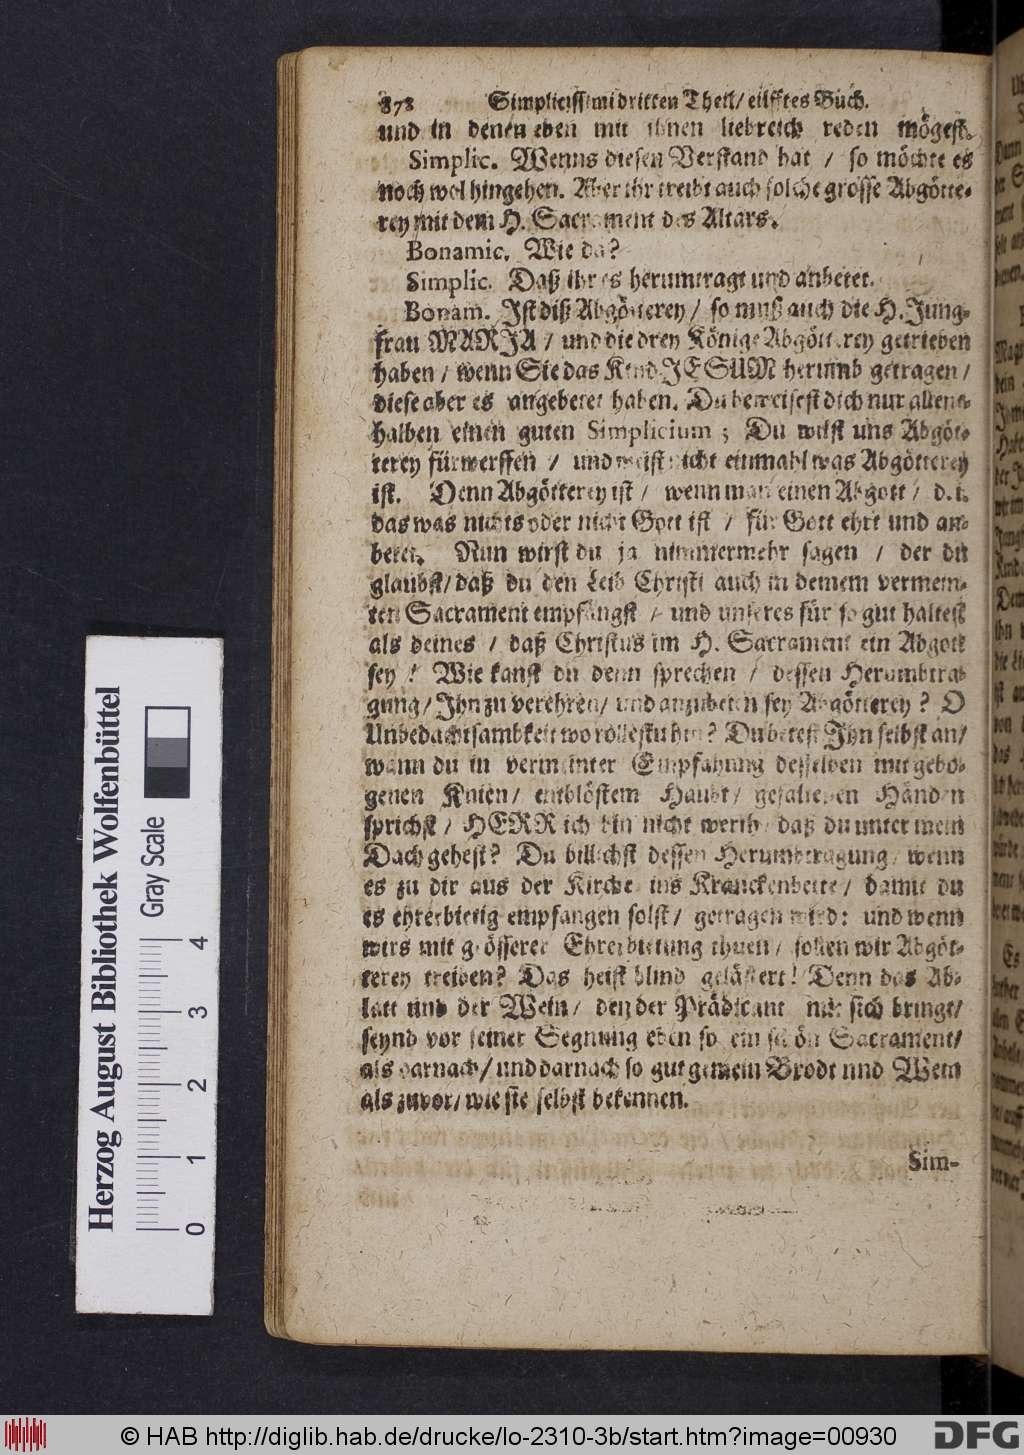 878 Simplicissimi dritten Theil/ eilfftes Buch.
und in denen eben mit ihnen liebreich reden mögest.
Simplic. Wenns diesen Verstand hat / so möchte es
noch wol hingehen. Aber ihr treibt auch solche grosse Abgötte-
rey mit dem H. Sacrament des Altars.
Bonamic. Wie da?
Simplic. Daß ihr es herumtragt und anbetet.
Bonam. Ist diß Abgötterey / so muß auch die H. Jung-
frau MARJA / und die drey Könige Abgötterey getrieben
haben / wenn Sie das Kind JESUM herumb getragen /
diese aber es angebetet haben. Du beweisest dich nur allent-
halben einen guten Simplicium ; Du wilst uns Abgöt-
terey fürwerffen / und weist nicht einmahl was Abgötterey
ist. Denn Abgötterey ist / wenn man einen Abgott / d. i.
das was nichts oder nicht Gott ist / für Gott ehrt und an-
betet. Nun wirst du ja nimmermehr sagen / der du
glaubst/ daß du den Leib Christi auch in deinem vermein-
ten Sacrament empfängst / und unseres für so gut haltest
als deines / daß Christus im H. Sacrament ein Abgott
sey ! Wie kanst du denn sprechen / dessen Herumbtra-
gung/ Ihn zu verehren/ und anzubeten sey Abgötterey ? O
Unbedachtsambkeit wo rollestu hin? Du betest Ihn selbst an/
wann du in verminter Empfahung desselben mit gebo-
genen Knien/ entblöstem Haubt/ gefaltenen Händen
sprichst / HERR ich bin nicht werth/ daß du unter mein
Dach gehest? Du billichst dessen Herumbtragung/ wenn
es zu dir aus der Kirche ins Kranckenbette/ damit du
es ehrerbietig empfangen solst/ getragen wird: und wenn
wirs mit grösserer Ehrerbietung thuen/ sollen wir Abgöt-
terey treiben? Das heist blind gelästert! Denn das Ab-
latt und der Wein/ den der Prädicant mit sich bringt/
seynd vor seiner Segnung eben so ein schön Sacrament/
als darnach/ und darnach so gut gemein Brodt und Wein
als zuvor/ wie sie selbst bekennen.
Sim-
Herzog August Bibliothek Wolfenbüttel
Gray Scale
0 1 2 3 4
© HAB http://diglib.hab.de/drucke/lo-2310-3b/start.htm?image=00930
DFG